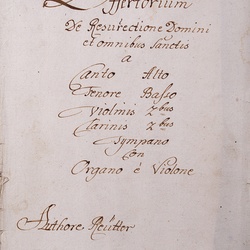 Offertorium
De Resurectione Domini
et omnibus Sanctis
a
Canto Alto
Tenore Basso
Violinis 2bus
Clarinis 2bus
Tympano
Con
Organo è Violone
Authore Reütter